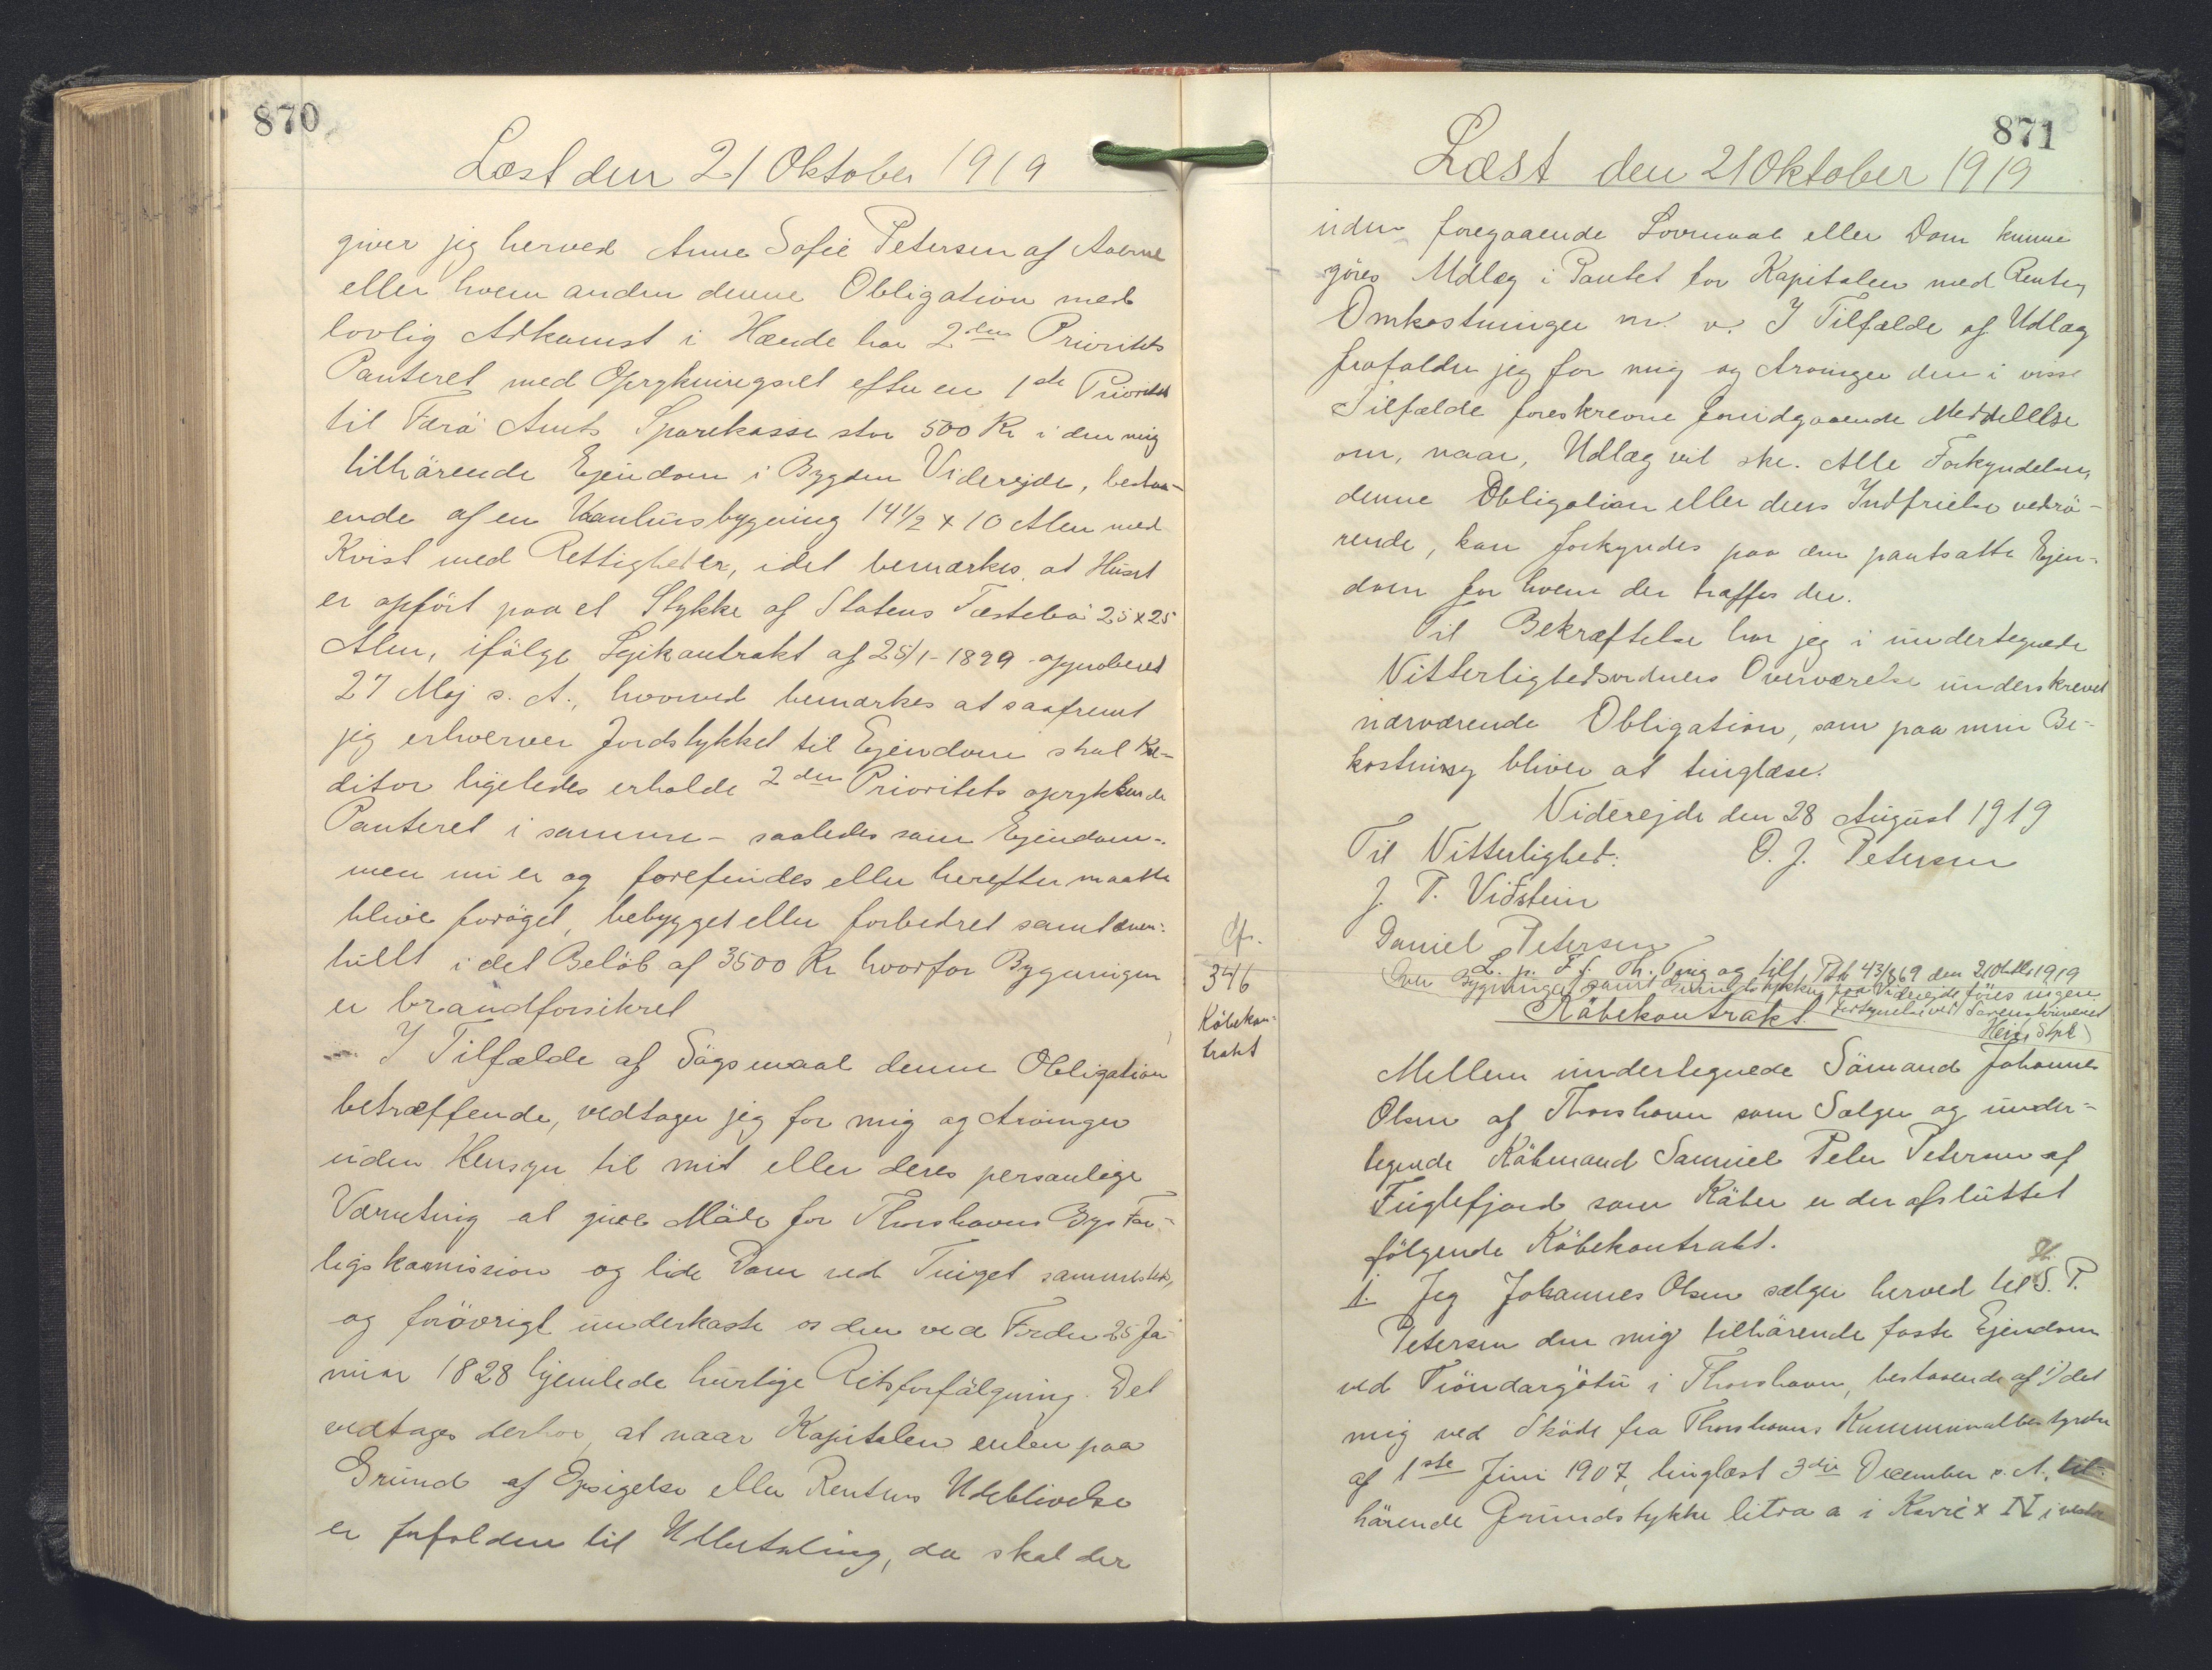 870
Læst den 21 Oktober 1919
giver jeg herved Anne Sofie Petersen af
eller hvem anden denne Obligation med
lovlig Adkomst i Hænde har 2den Prioritets
Panteret med Oprykningsret efter en 1ste Prioritet
til Færø Amts Sparekasse stor 500 Kr i den mig
tilhørende Ejendom i Bygden Viderejde, bestaa-
ende af en Vaanhusbygning 14½ x 10 Alen med
Kvist med Rettigheter, idet bemærkes, at Huset
er opført paa et Stykke af Statens Fæstebø 25 x 25
Alen, ifølge Lejekontrakt af 25/1-1899 approberet
27 Maj s. A., hvorved bemærkes at saafremt
jeg erhverver Jordstykket til Ejendom skal Kre-
ditor ligeledes erholde 2den Prioritets oprykkende
Panteret i samme - saaledes som Ejendom-
men nu er og forefindes eller herefter maatte
blive forøget, bebygget eller forbedret samt even-
tuelt i det Beløb af 3500 Kr hvorfor Bygningen
er brandforsikret
I Tilfælde af Søgsmaal denne Obligation
betræffende, vedtager jeg for mig og Arvinger
uden Hensyn til mit eller deres personlige
Værneting at give Møde for Thorshavns Bys For-
ligskommission og lide Dom ved Tinget sammesteds,
og forøvrigt underkaste os den ved Frdn 25 Ja-
nuar 1828 hjemlede hurtige Retsforfølgning. Det
vedtages derhos, at naar Kapitalen enten paa
Grund af Opsigelse eller Rentens Udeblivelse
er forfalden til Udbetaling, da skal der
871
Læst den 21 Oktober 1919
uden foregaaende Lovmaal eller Dom kunne
gøres Udlæg i Pantet for Kapitalen med Renter,
Omkostninger m. v. I Tilfælde af Udlæg
frafalder jeg for mig og Arvinger den i visse
Tilfælde foreskrevne forudgaaende Meddelelse
om, naar, Udlæg vil ske. Alle Forkyndelser,
denne Obligation eller dens Indfrielse vedrø-
rende, kan forkyndes paa den pantsatte Ejen-
dom for hvem der træffes der.
Til Bekræftelse har jeg i undertegnede
Vitterlighedsvidners Overværelse underskrevet
nærværende Obligation, som paa min Be-
kostning bliver at tinglæse.
Viderejde den 28 August 1919
Til Vitterlighed: O. J. Petersen
J. P. Viðstein
Daniel Petersen
L. p. F. S. Th. Ting og tilf. Ptb 43/869 den 21 Oktbr 1919
Over Bygninger samt Grundstykker paa Viderejde føres ingen
Fortegnelse ved Sorenskriveriet
Heis, Stpl
Cfr.
346
Købekon-
trakt
Købekontrakt.
Mellem undertegnede Sømand Johannes
Olsen af Thorshavn som Sælger og under-
tegnede Købmand Samuel Peter Petersen af
Fuglefjord som Køber er der afsluttet
følgende Købekontrakt.
1. Jeg Johannes Olsen sælger herved til Hr. S. P.
Petersen den mig tilhørende faste Ejendom
ved Tróndargøtu i Thorshavn, bestaaende af 1) det
mig ved Skøde fra Thorshavns Kommunalbestyrelse
af 1ste Juni 1907, tinglæst 3die December s. A., til-
hørende Grundstykke litra a i Karré x N i